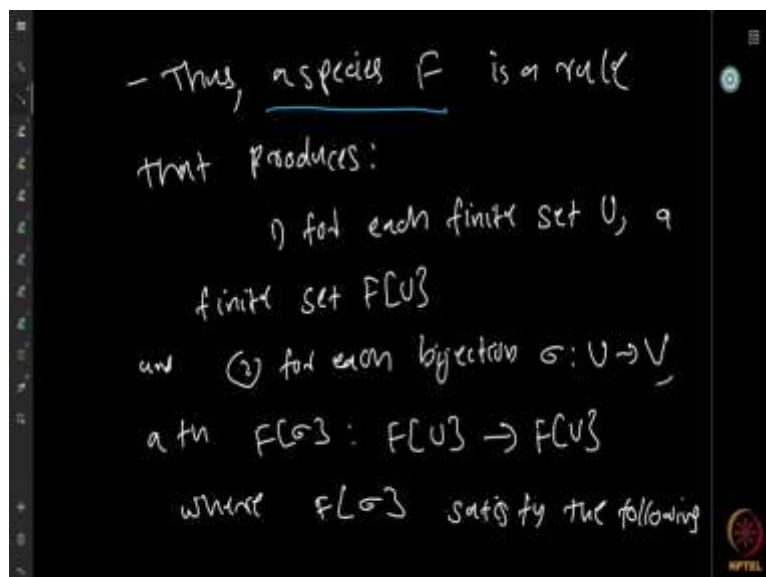 - Thus, a species F is a rule
that produces:
1) for each finite set U, a
finite set F[U]
and ② for each bijection σ: U → V,
a fn F[σ] : F[U] → F[V]
where F[σ] satisfy the following
NPTEL